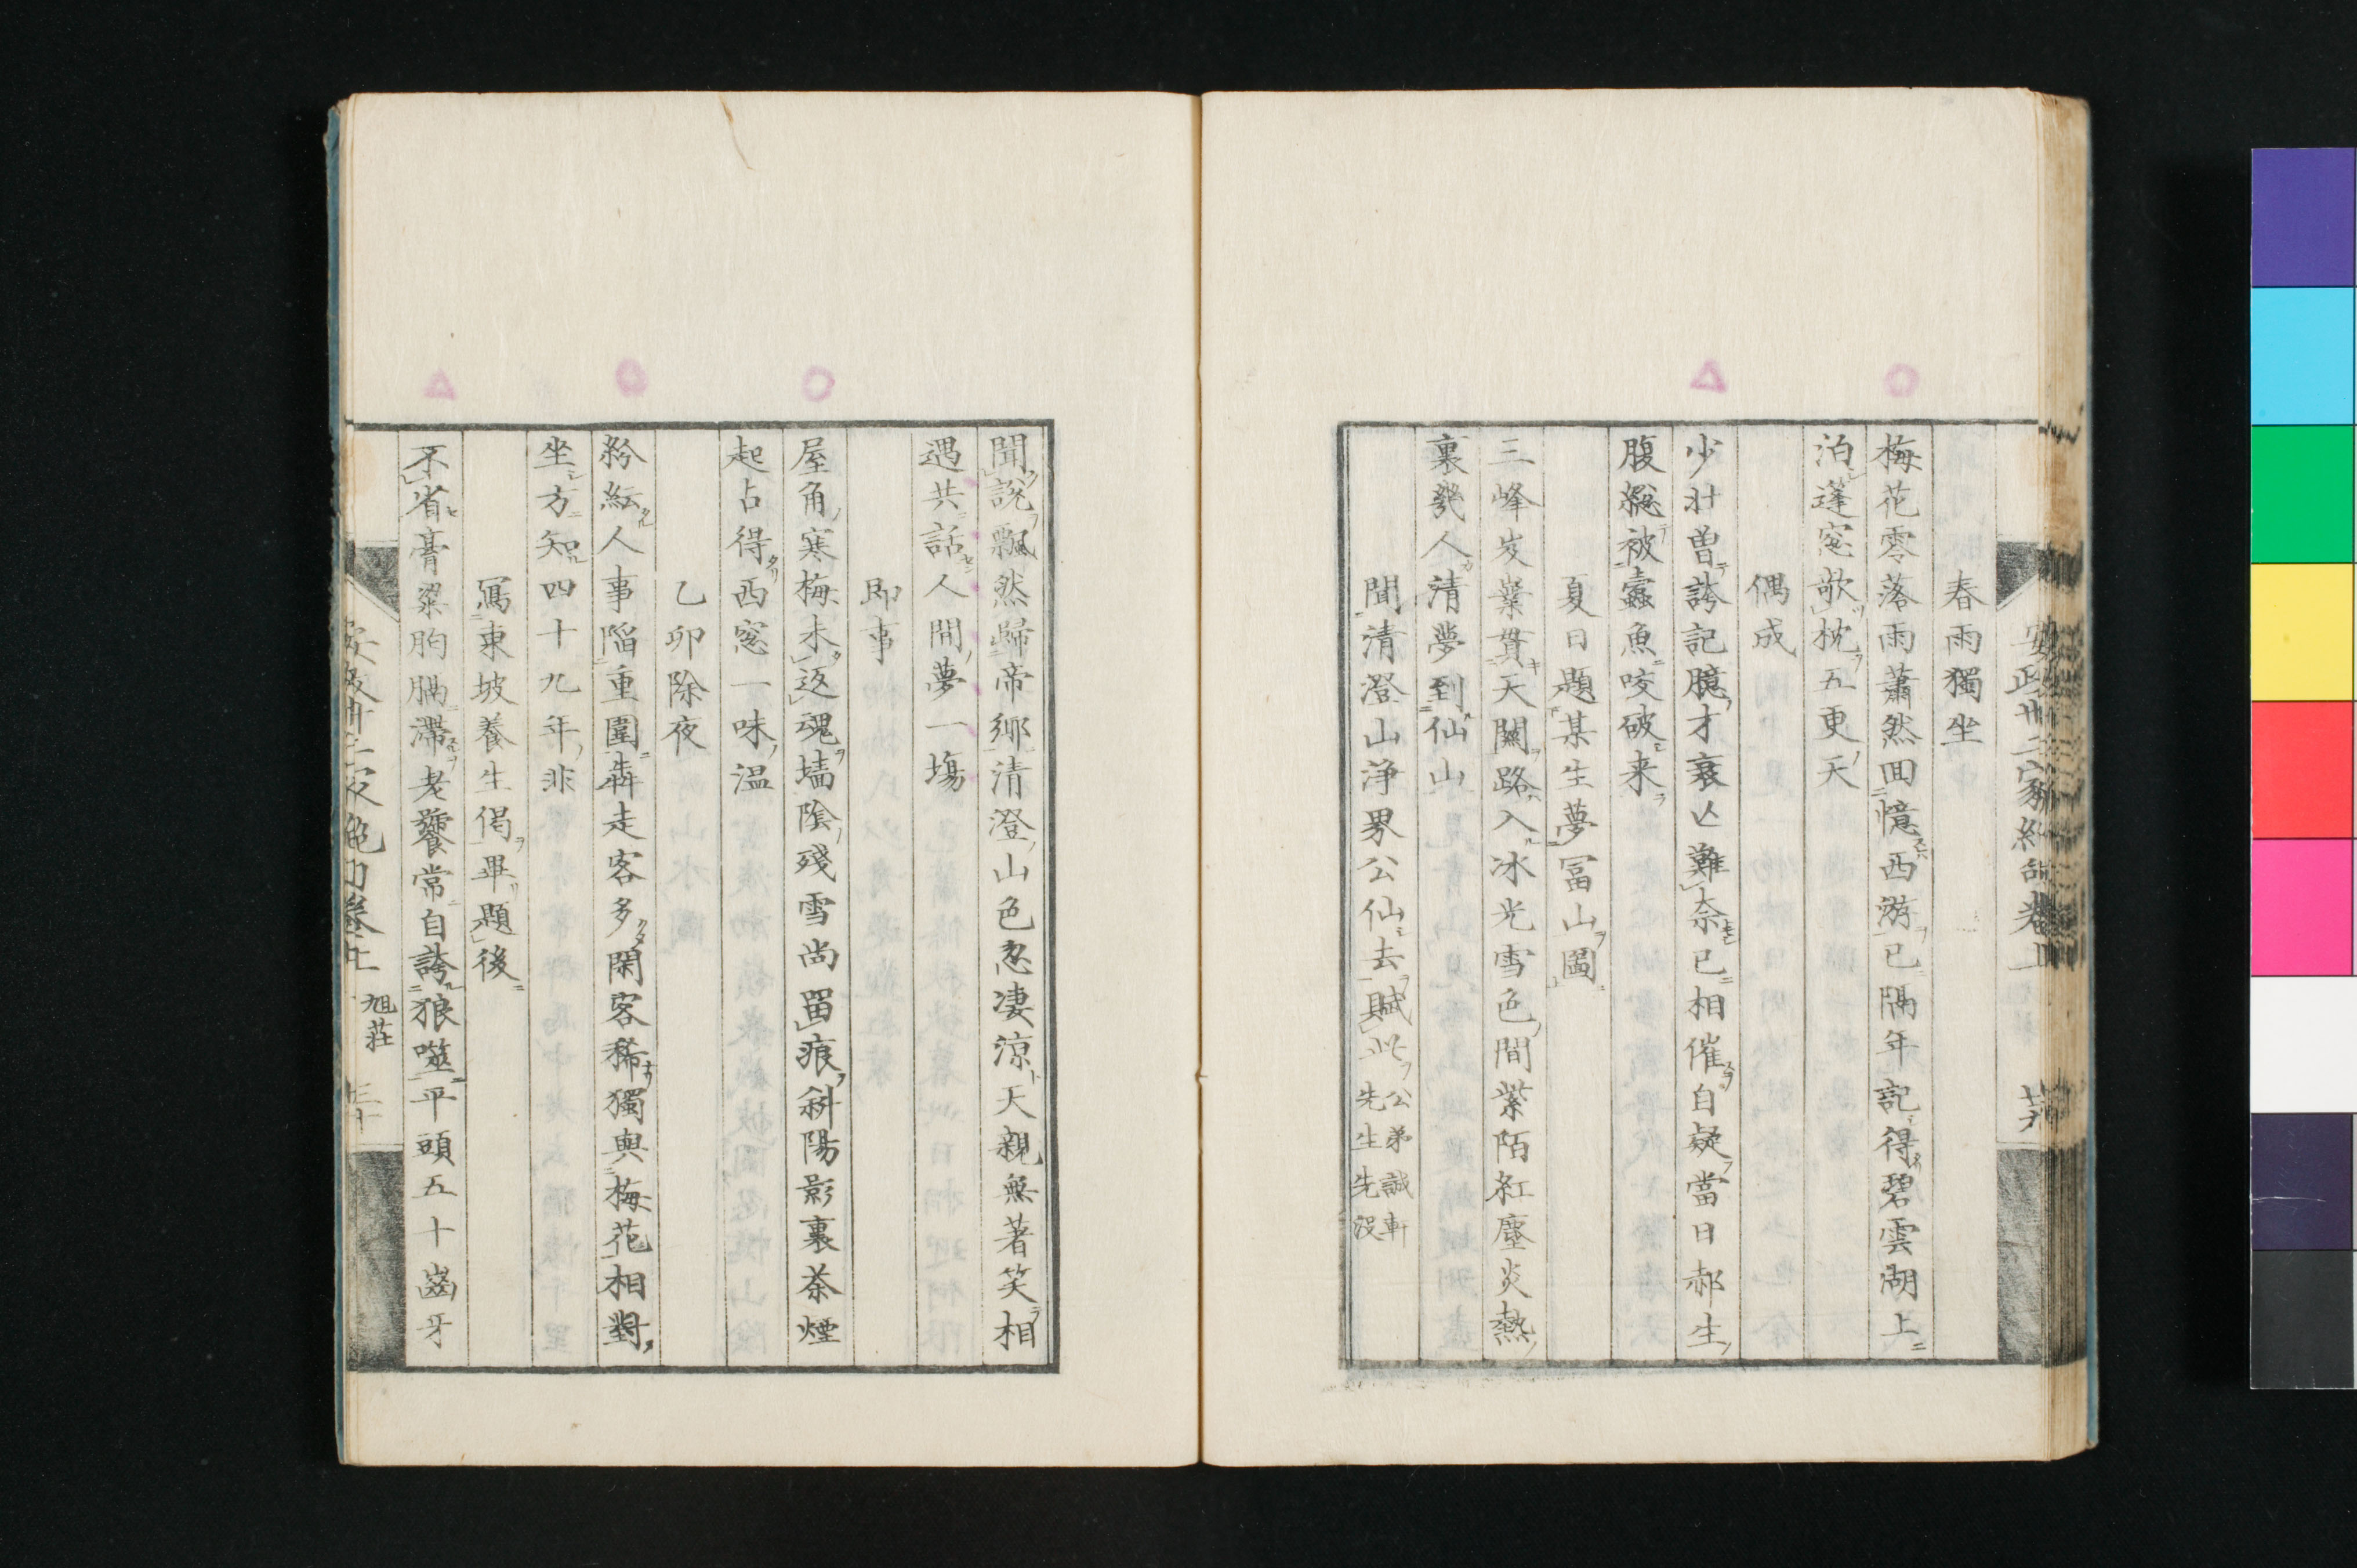 春雨獨坐
梅花零落雨蕭然回憶西游已隔年記得碧雲湖上
泊蓬窓欹枕五更天
偶成
少壮曽誇記臆才衰亾難奈已相催自疑當日郝生
腹縂被蠹魚咬破来
夏日題某生夢冨山圖
三峰岌嶪貫天關路入冰光雪色間紫陌紅塵炎熱
裏幾人清夢到仙山
聞清澄山浄界公仙去賦此公弟誠軒先生先沒
聞說飄然歸帝鄉清澄山色忽凄涼天親無著笑相
遇共話人間夢一塲
即事
屋角寒梅未返魂墻陰殘雪尚留痕斜陽影裏茶煙
起占得西窓一味温
乙卯除夜
紛紜人事陷重圍犇走客多閑客稀獨與梅花相對
坐方知四十九年非
寫東坡養生偈畢題後
不省膏粱朐膈滯老饕常自誇狼噬平頭五十齒牙
旭荘